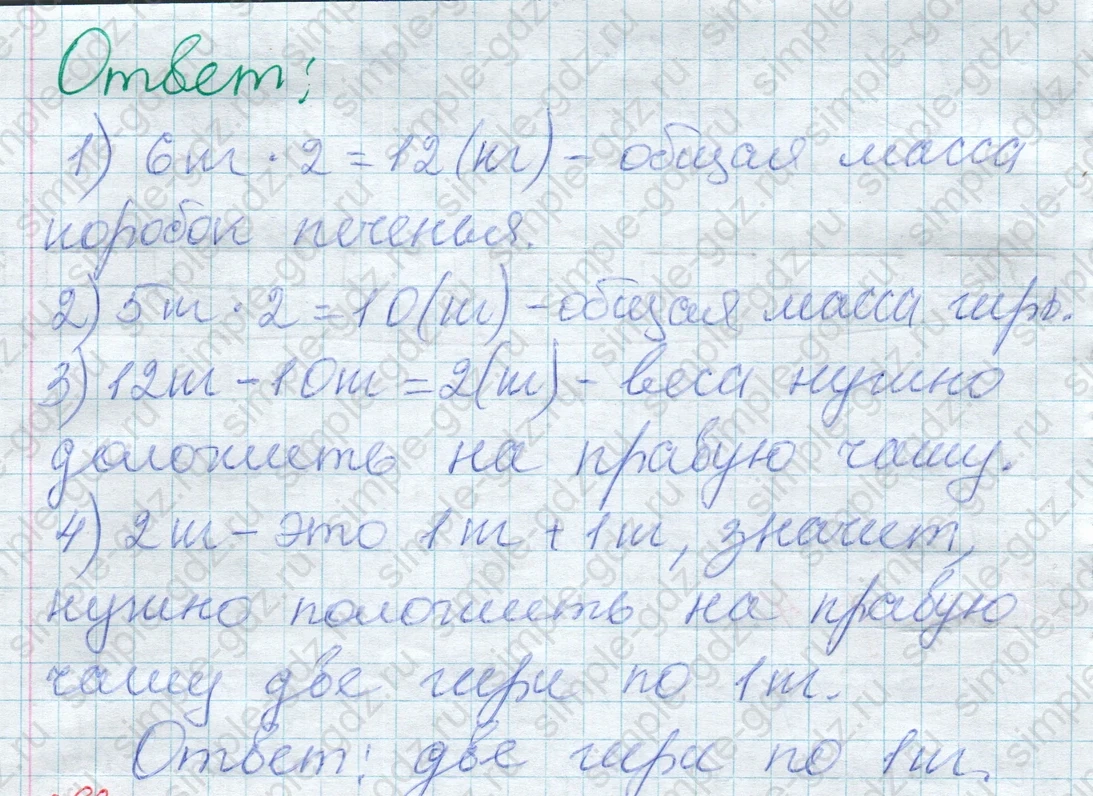 Ответ:
1) 6кг · 2 = 12 (кг) – общая масса
коробок печенья.
2) 5кг · 2 = 10 (кг) – общая масса гирь.
3) 12кг – 10кг = 2 (кг) – веса нужно
доложить на правую чашу.
4) 2кг – это 1кг + 1кг, значит,
нужно положить на правую
чашу две гири по 1кг.
Ответ: две гири по 1кг.
simple-gdz.ru